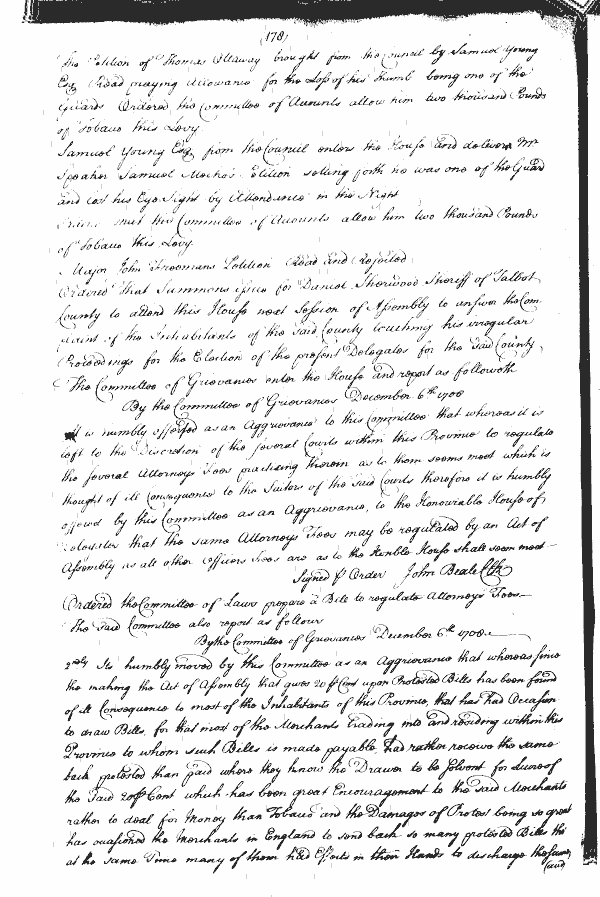 (178)
The Petition of Thomas Ottaway brought from the Council by Samuel Young
Esq Read praying Allowance for the Loss of his Thumb being one of the
Guards Ordered the Committee of Accounts allow him two thousand Pounds
of Tobacco this Levy
Samuel Young Esq from the Council enters the House and delivers Mr
Speaker Samuel Petition setting forth he was one of the Guard
and lost his Eye Sight by Attendance in the Night
that the Committee of Accounts allow him two thousand Pounds
of Tobacco this Levy.
Major John Freemans Petition Read and Rejected
Ordered that Summons issue for Daniel Sherwood Sheriff of Talbot
County to attend this House next Session of Assembly to answer the Com
plaint of the Inhabitants of the said County touching his irregular
Proceedings for the Election of the present Delegates for the said County
The Committee of Grievances enter the House and report as followeth
By the Committee of Grievances December 6th 1708
It is humbly offered as an Aggrievance to this Committee that whereas it is
left to the Discretion of the several Courts within this Province to regulate
the several Attorneys Fees practising therein as to them seems meet which is
thought of ill Consequence to the Suitors of the said Courts therefore it is humbly
offered by this Committee as an Aggrievance, to the Honourable House of
Delegates that the same Attorneys Fees may be regulated by an Act of
Assembly as all other Officers Fees are as to the Honble House shall seem meet
Signed p Order John Beale Clk
Ordered the Committee of Laws prepare a Bill to regulate Attorneys Fees
The said Committee also report as follows
By the Committee of Grievances December 6th 1708
2ndly Its humbly moved by this Committee as an Aggrievance that whereas since
the making the Act of Assembly that gives 20 p Cent upon Protested Bills has been found
of ill Consequence to most of the Inhabitants of this Province, that has had Occasion
to draw Bills, for that most of the Merchants trading into and residing within this
Province to whom such Bills is made payable, had rather receive the same
back protested than paid where they know the Drawer to be Solvent for Lucre of
the said 20 p Cent which has been great Encouragement to the said Merchants
rather to deal for Money than Tobacco and the Damages of Protest being so great
has occasioned the Merchants in England to send back so many protested Bills tho
at the same Time many of them had Effects in their Hands to discharge the same
(and